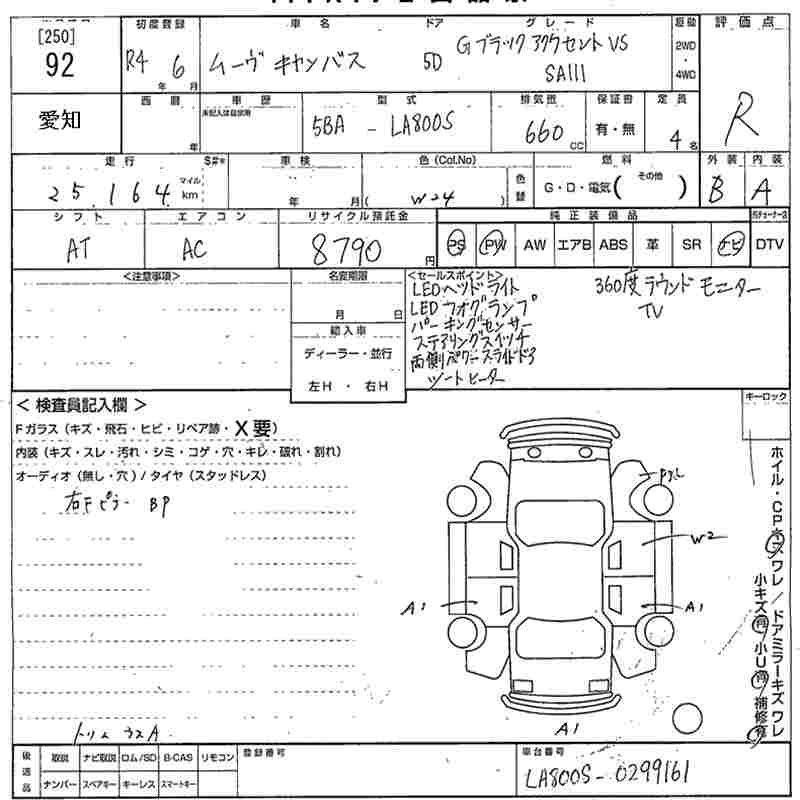 [250]
92
愛知
初度登録
R4 年 6 月
車名
ムーヴ キャンバス
ドア
5D
グレード
G ブラック アクセント VS
SAIII
駆動
2WD
・
4WD
評価点
R
西暦
年
車歴
未記入は自家用
型式
5BA - LA800S
排気量
660 cc
保証書
有・無
定員
4 名
走行
25,164
マイル
km
S#*
車検
年 月
色 (Col.No)
( W24 )
色替
燃料
G・D・電気( その他 )
外装
B
内装
A
シフト
AT
エアコン
AC
リサイクル預託金
8790 円
純正装備品
PS PW AW エアB ABS 革 SR ナビ DTV
<注意事項>
名変期限
月 日
輸入車
ディーラー・並行
左H ・ 右H
<セールスポイント>
LEDヘッドライト
LEDフォグランプ
パーキングセンサー
ステアリングスイッチ
両側パワースライドドア
シートヒーター
360度ラウンドモニター
TV
キーロック
< 検査員記入欄 >
Fガラス (キズ・飛石・ヒビ・リペア跡・X要)
内装 (キズ・スレ・汚れ・シミ・コゲ・穴・キレ・破れ・割れ)
オーディオ (無し・穴) / タイヤ (スタッドレス)
右Fピラー BP
W2
A1
A1
A1
ホイル・CPキズワレ / ドアミラーキズワレ
小キズ 小U 補修
後送品
取説 ナビ取説 ロム/SD B-CAS リモコン
ナンバー スペアキー キーレス スマートキー
登録番号
車台番号
LA800S-0299161